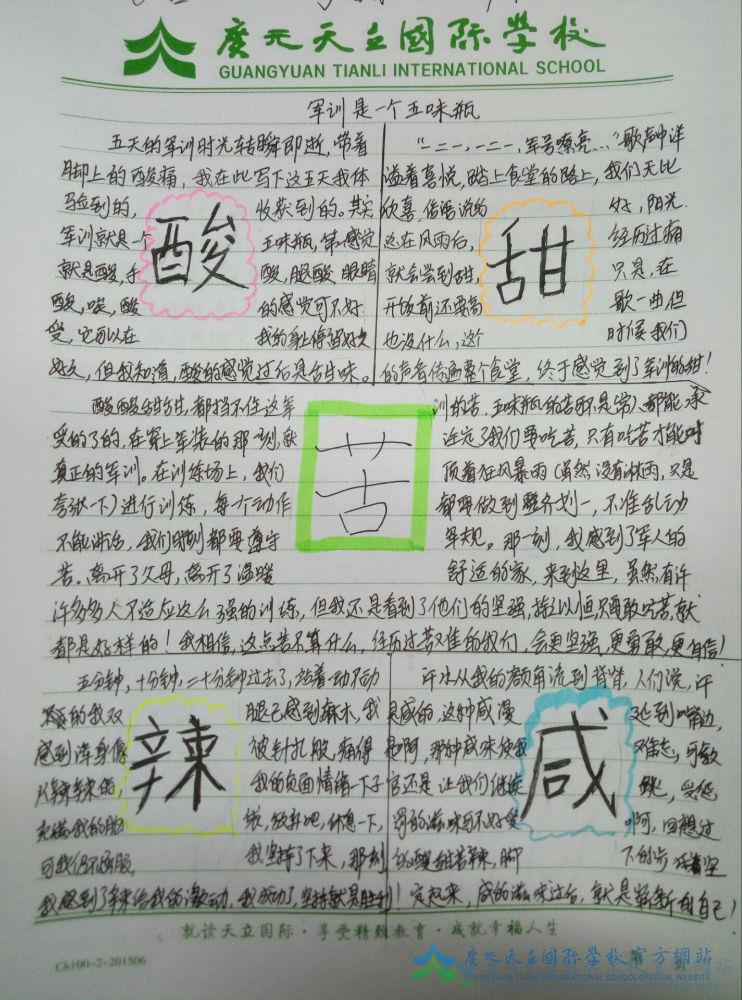 廣元天立國际學校
GUANGYUAN TIANLI INTERNATIONAL SCHOOL
军训是一个五味瓶
五天的军训时光转瞬即逝，带着
脚上的酸痛，我在此写下这五天我体
验到的，收获到的。其实
军训就是一个五味瓶，第一感觉
就是酸，手酸，腿酸，眼睛
酸，唉，酸的感觉可不好
受，它可以在我的身上停留好久
好久，但我知道，酸的感觉过后是甘甜味。
酸
“一二一，一二一，军号嘹亮…”歌声中洋
溢着喜悦，踏上食堂的路上，我们无比
欣喜，俗话说的好，阳光
总在风雨后，经历过痛
就会尝到甜，只是，在
开饭前还要高歌一曲但
也没什么，这个时候我们
的声音传遍整个食堂，终于感觉到了军训的甜！
甜
酸酸甜甜，都挡不住这军训的苦，五味瓶的苦不是常人都能承
受的了的，在穿上军装的那一刻，就注定了我们要吃苦，只有吃苦才能叫
真正的军训。在训练场上，我们顶着狂风暴雨（虽然没有淋雨，只是
夸张一下）进行训练，每一个动作都要做到整齐划一，不准乱动
不能讲话，我们时刻都要遵守军规。那一刻，我感到了军人的
苦。离开了父母，离开了温暖舒适的家，来到这里，虽然有许
许多多人不适应这么强的训练，但我还是看到了他们的坚强，持之以恒，只要敢吃苦，就
都是好样的！我相信，这点苦不算什么，经历过苦难的我们，会更坚强，更勇敢，更自信！
苦
五分钟，十分钟，二十分钟过去了，站着一动不动
的我双腿已感到麻木，我
感到浑身像被针扎般，痛得
火辣辣的，我的负面情绪一下子
充满我的胸
可我仍不服，我坚持了下来，那刻
我感到了辣给我的激动，我成功了，坚持就是胜利！
辣
汗水从我的额角流到背脊，人们说，汗
是咸的，这种咸漫延到嘴边，
是啊，那种咸味使我难忘，可教
官还是让我们继续跳，受惩
罚的滋味可不好受啊，回想过
酸甜苦辣，脚
定起来，咸的滋味过后，就是崭新的自己！
咸
就读天立国际·享受精致教育·成就幸福人生
Ch100-2-201506
廣元天立國际學校官方網站
GUANGYUAN TIANLI INTERNATIONAL SCHOOLOFFICIAL WEBSITE